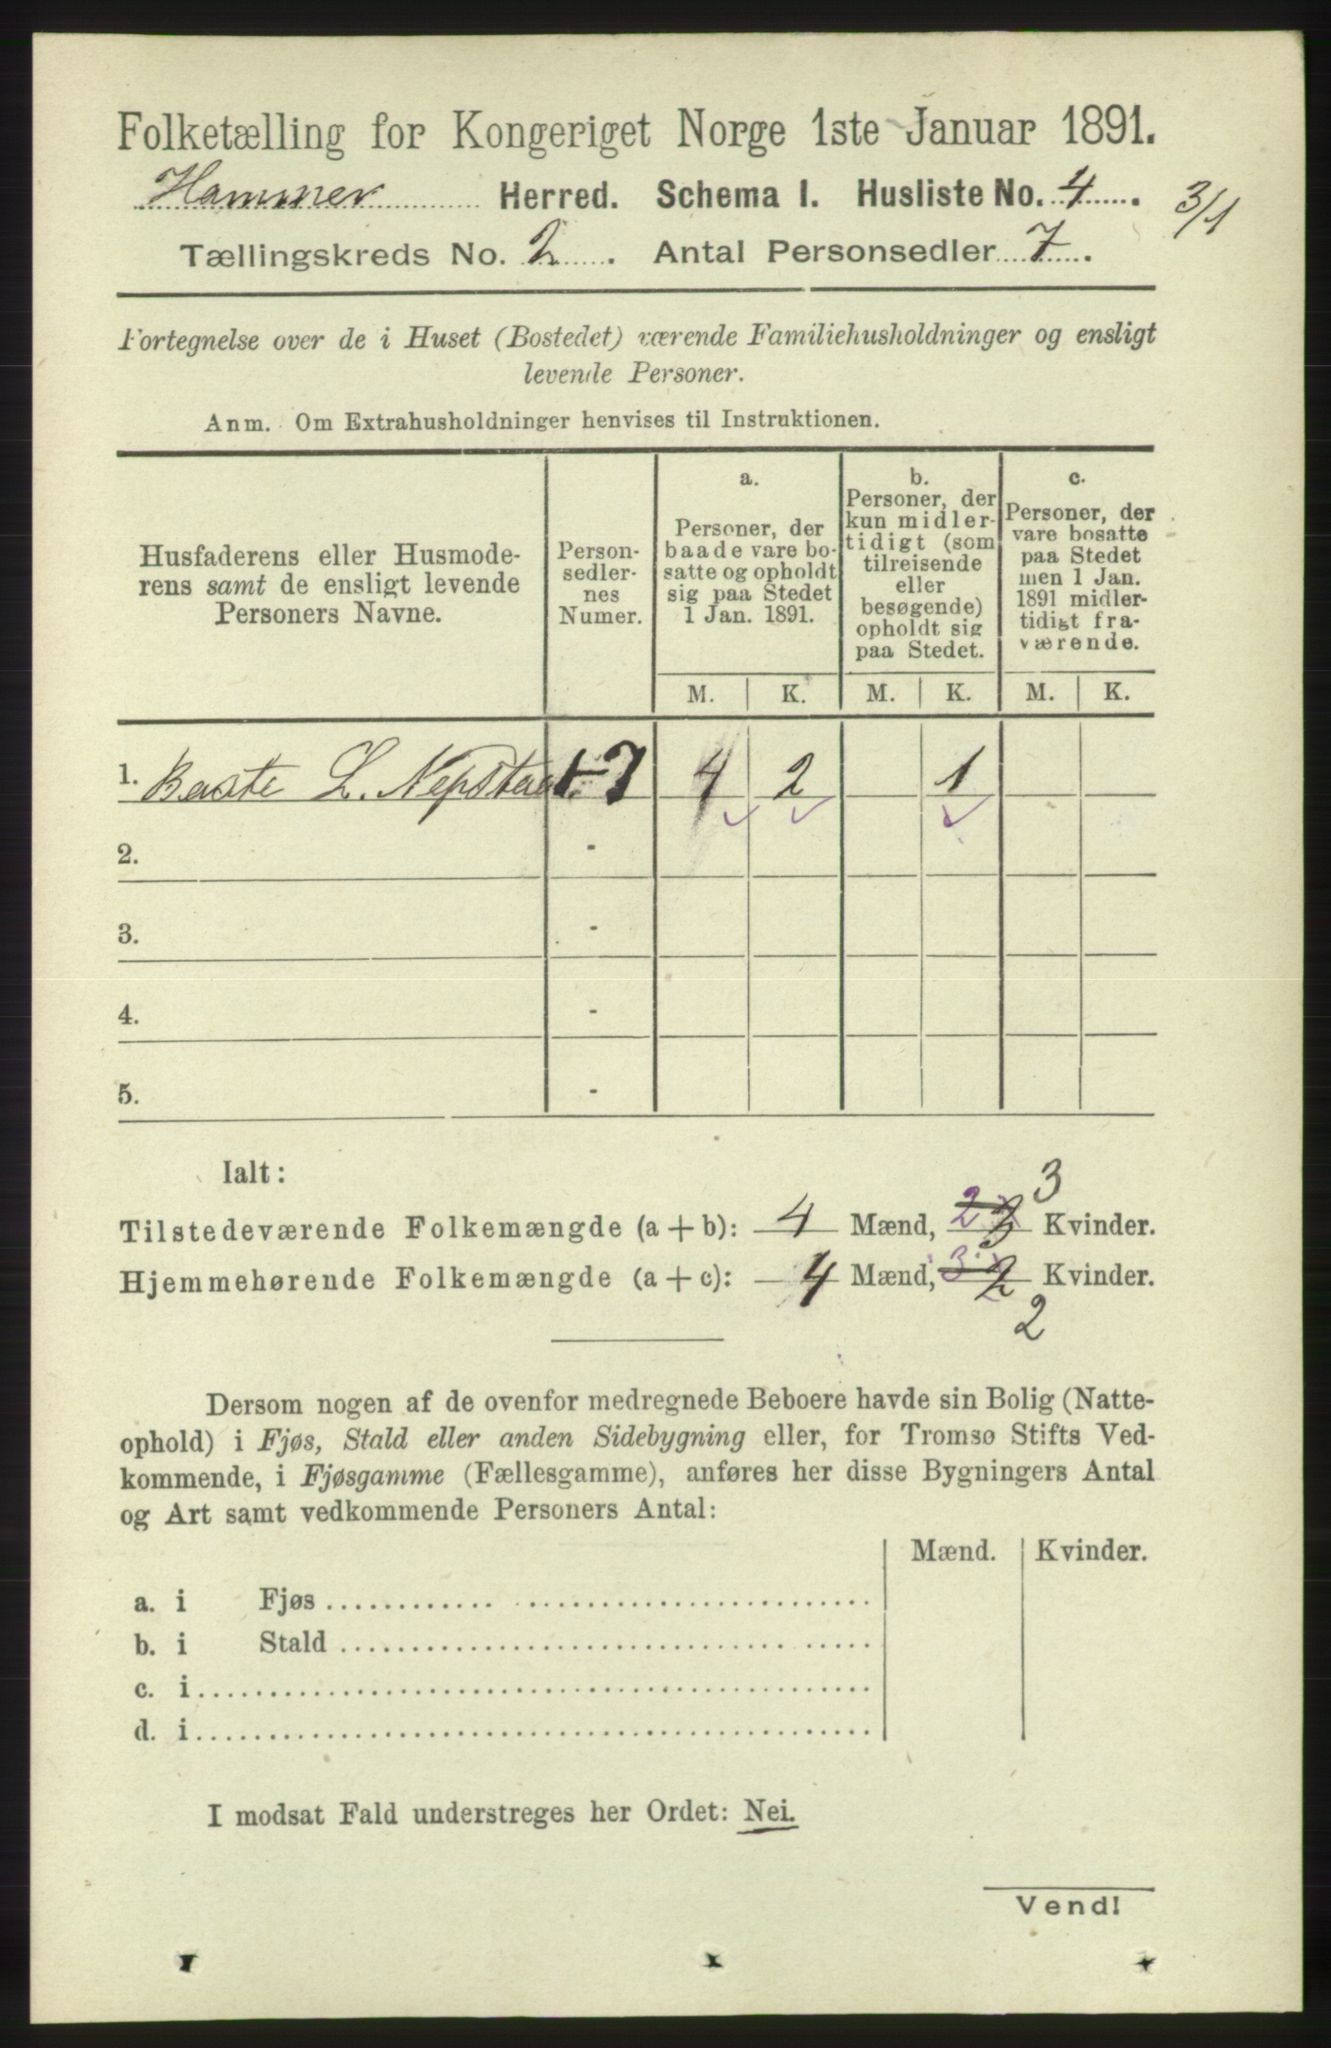 Folketælling for Kongeriget Norge 1ste Januar 1891.
Hammer Herred. Schema I. Husliste No. 4.
3/1
Tællingskreds No. 2. Antal Personsedler 7.
Fortegnelse over de i Huset (Bostedet) værende Familiehusholdninger og ensligt
levende Personer.
Anm. Om Extrahusholdninger henvises til Instruktionen.
Husfaderens eller Husmode-
rens samt de ensligt levende
Personers Navne.
Person-
sedler-
nes
Numer.
a.
Personer, der
baade vare bo-
satte og opholdt
sig paa Stedet
1 Jan. 1891.
b.
Personer, der
kun midler-
tidigt (som
tilreisende
eller
besøgende)
opholdt sig
paa Stedet.
c.
Personer, der
vare bosatte
paa Stedet
men 1 Jan.
1891 midler-
tidigt fra-
værende.
M. K. M. K. M. K.
1. Baste L. Nepstad 1-7 4 2 1
2. -
3. -
4. -
5. -
Ialt:
3
Tilstedeværende Folkemængde (a + b): 4 Mænd, 2 3 Kvinder.
Hjemmehørende Folkemængde (a + c): 4 Mænd, 3 2 Kvinder.
2
Dersom nogen af de ovenfor medregnede Beboere havde sin Bolig (Natte-
ophold) i Fjøs, Stald eller anden Sidebygning eller, for Tromsø Stifts Ved-
kommende, i Fjøsgamme (Fællesgamme), anføres her disse Bygningers Antal
og Art samt vedkommende Personers Antal:
Mænd. Kvinder.
a. i Fjøs
b. i Stald
c. i
d. i
I modsat Fald understreges her Ordet: Nei.
Vend!